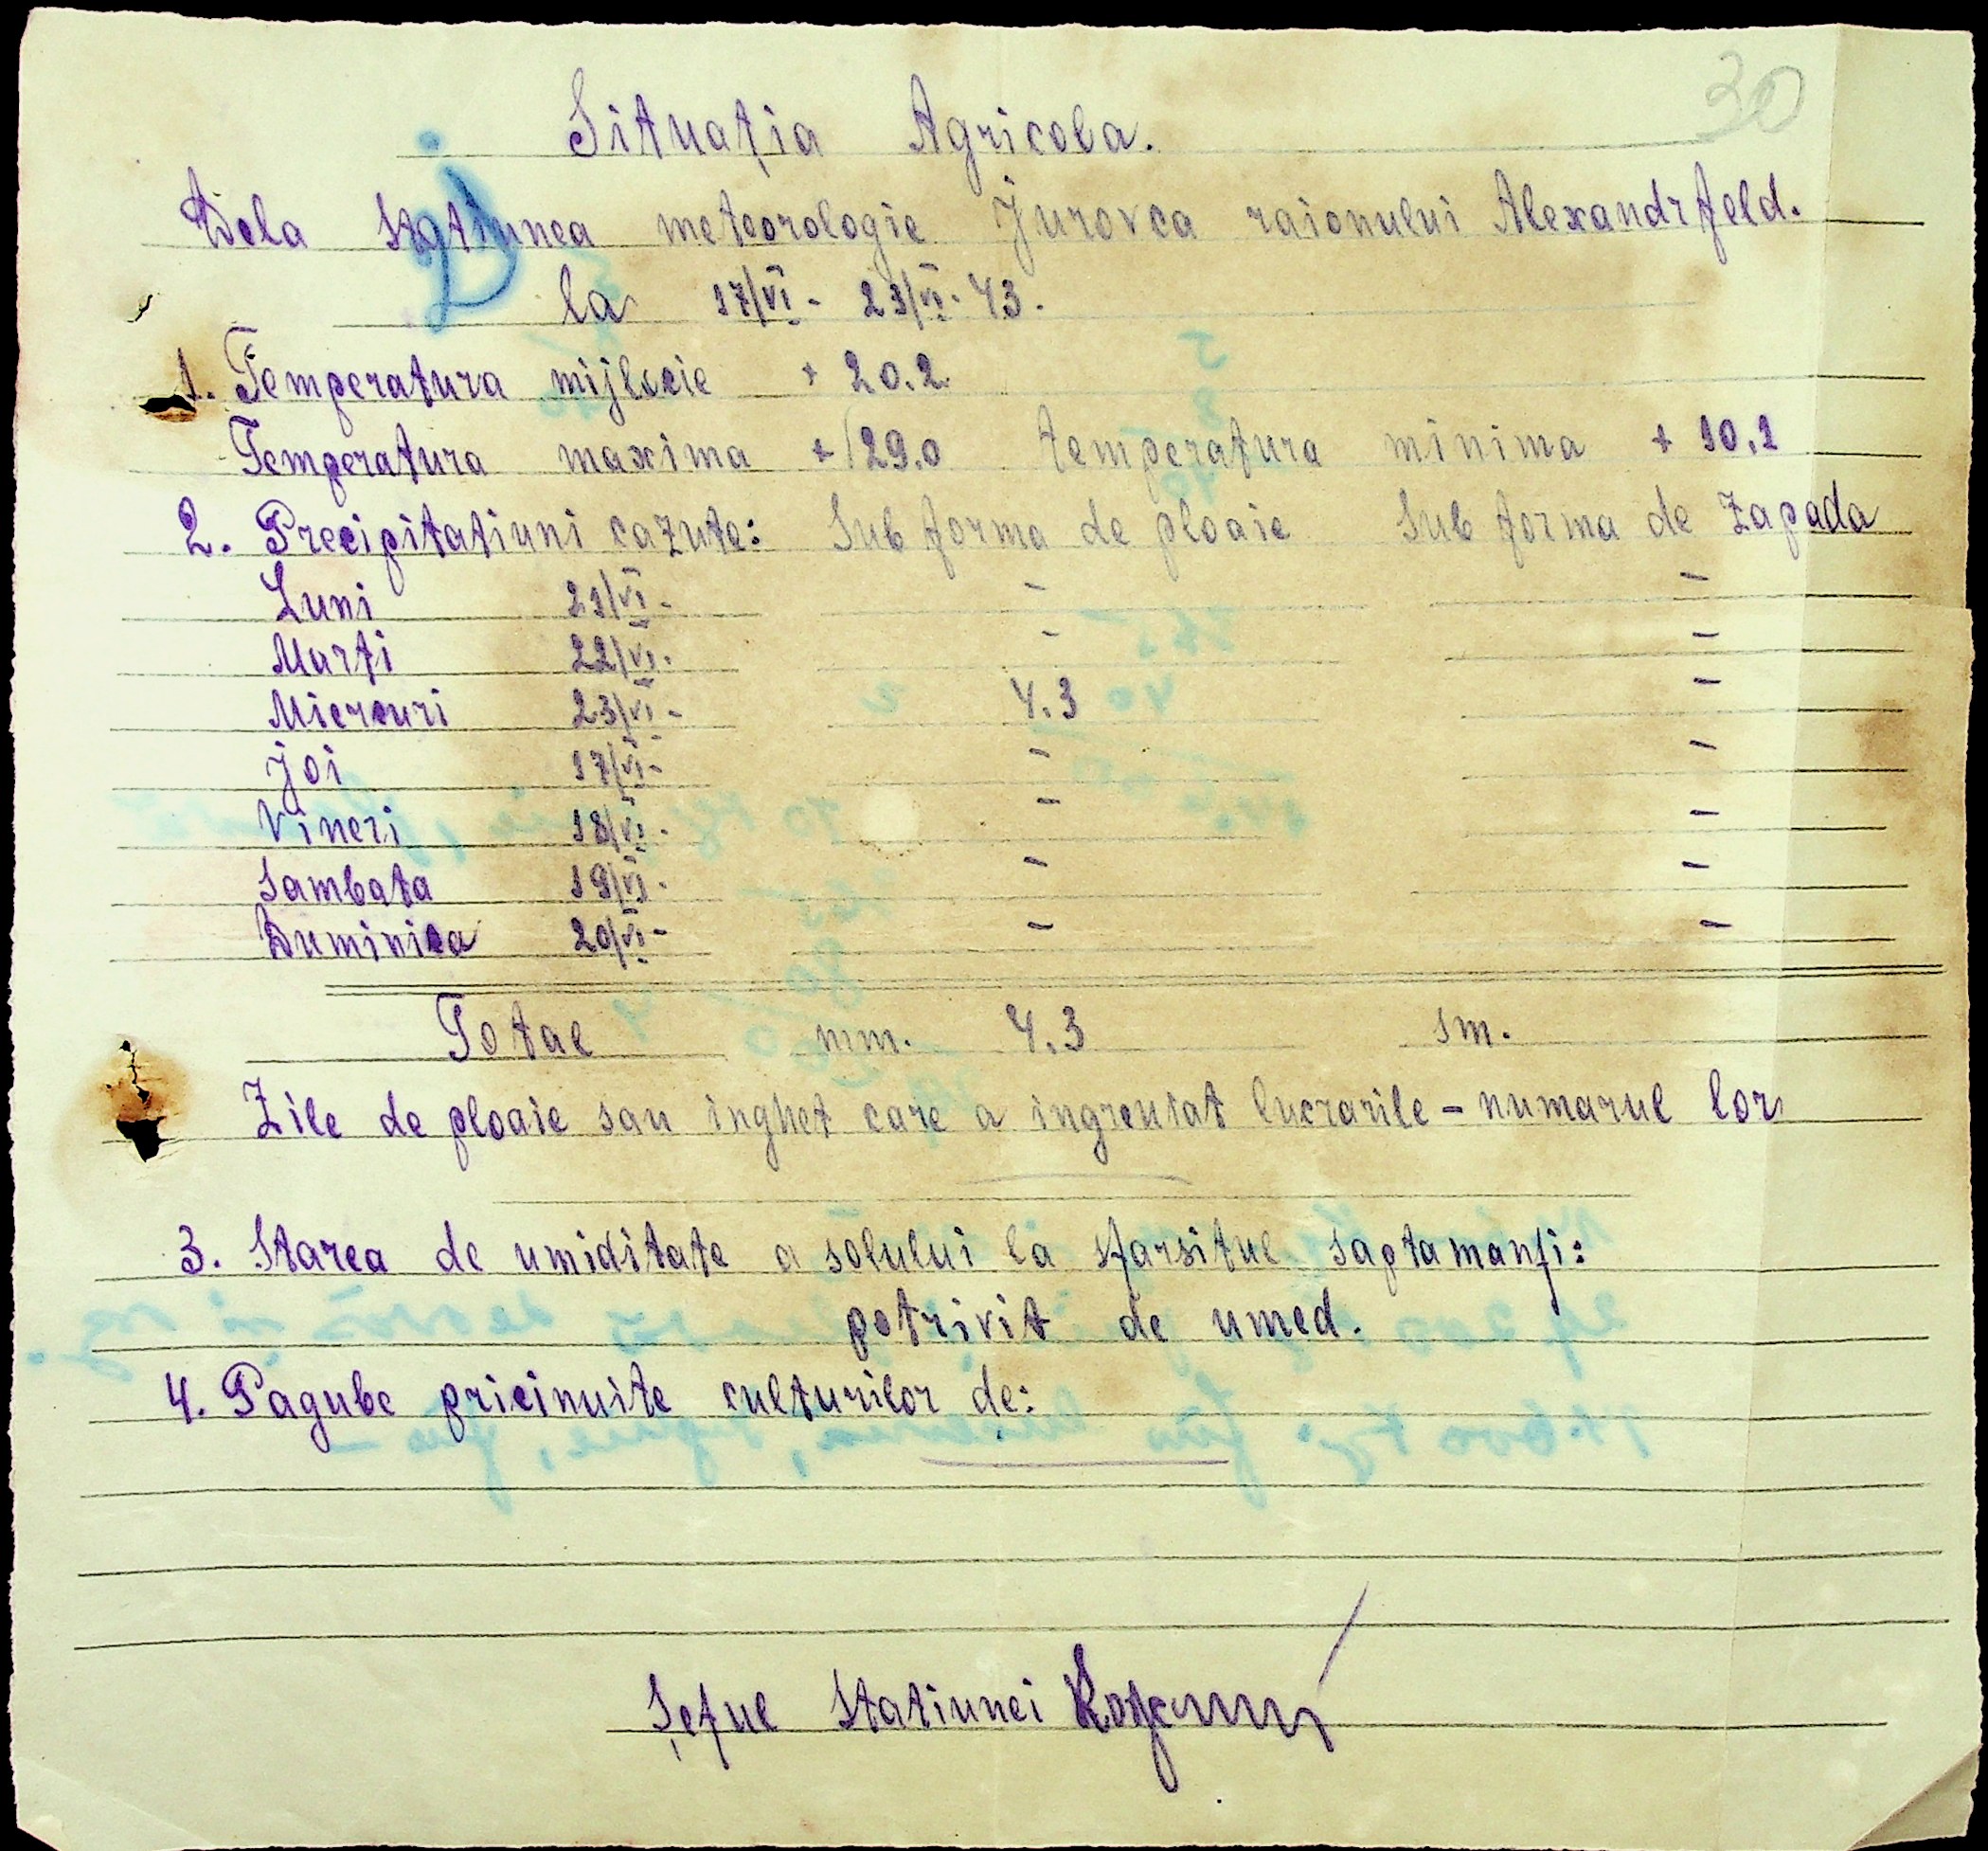 30
Situația Agricola.
Dela stațiunea meteorologie Jurovca raionului Alexandrfeld.
la 17/VI - 23/VI - 43.
1. Temperatura mijlocie + 20.2.
Temperatura maxima + 29.0 temperatura minima + 10.1
2. Precipitatiuni cazute: Sub forma de ploaie Sub forma de Zapada
Luni 21/VI - - -
Marți 22/VI. - -
Miercuri 23/VI - 4.3 -
Joi 17/VI - - -
Vineri 18/VI - - -
Sambata 19/VI - - -
Duminica 20/VI - - -
Total mm. 4.3 sm.
Zile de ploaie sau inghet care a ingreuiat lucrarile - numarul lor
3. Starea de umiditate a solului la sfarsitul saptamanii:
potrivit de umed.
4. Pagube pricinuite culturilor de:
Șeful Statiunei